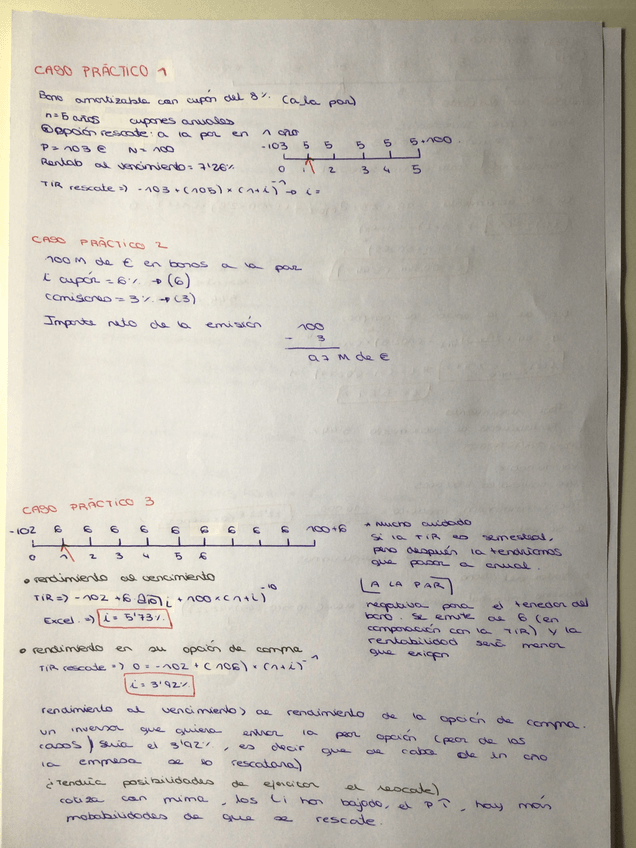 CASO PRÁCTICO 1
Bono amortizable con cupón del 8% (a la par)
n=5 años cupones anuales
opción rescate: a la par en 1 año
P=103€ N=100
-103 5 5 5 5 5+100
Rentab al vencimiento=7'26%
0 1 2 3 4 5
TIR rescate=) -103+(105)×(1+i)⁻¹→ i=
CASO PRÁCTICO 2
100 M de € en bonos a la par
i cupón=6% → (6)
comisiones=3% → (3)
Importe neto de la emisión
100
- 3
97 M de €
CASO PRÁCTICO 3
-102 6 6 6 6 6 6 6 6 6 100+6
0 1 2 3 4 5 6
* Mucho cuidado
si la TIR es semestral,
pero después la tendríamos
que pasar a anual.
• rendimiento al vencimiento
TIR=) -102+6 a10 i +100×(1+i)⁻¹⁰
Excel=) i=5'73%
A LA PAR
negativa para el tenedor del
bono. Se emite al 6 (en
comparación con la TIR) y la
rentabilidad será menor
que exigen
• rendimiento en su opción de compra
TIR rescate=) 0=-102+(106)×(1+i)⁻¹
i=3'92%
rendimiento al vencimiento) al rendimiento de la opción de compra.
un inversor que quiera entrar la peor opción (peor de los
casos) sería el 3'92%, es decir que al cabo de un año
la empresa se lo rescatara)
¿Tendría posibilidades de ejercitar el rescate)
cotiza con prima, los ti han bajado, el P↑, hay más
probabilidades de que se rescate.